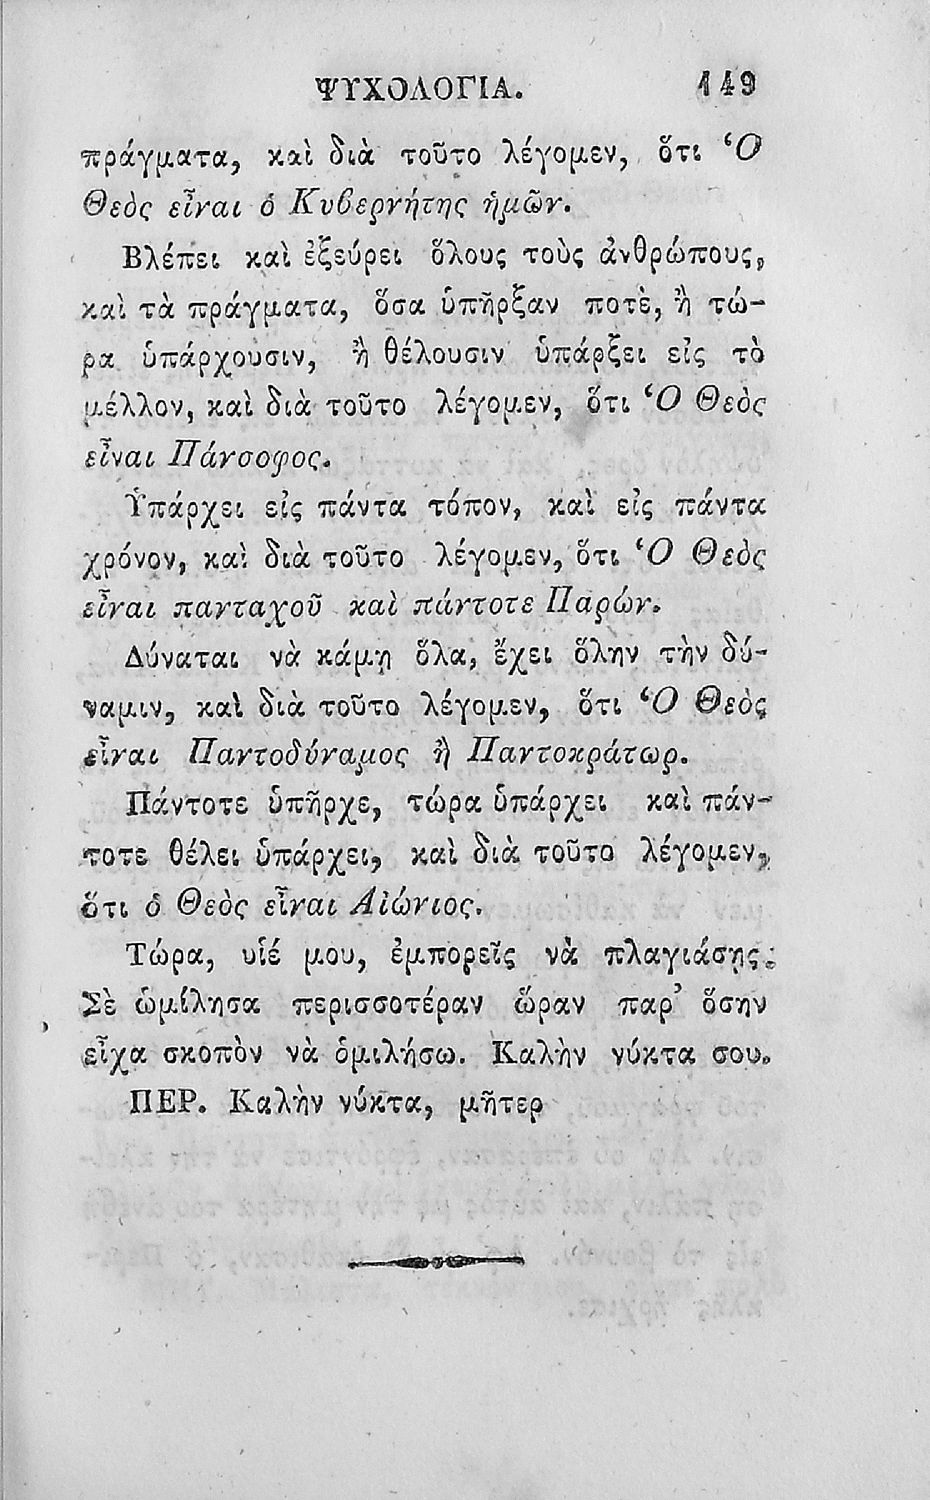 ΨΥΧΟΛΟΓΙΑ. 149
πράγματα, καὶ διὰ τοῦτο λέγομεν, ὅτι Ὁ
Θεὸς εἶναι ὁ Κυβερνήτης ἡμῶν.
Βλέπει καὶ ἐξεύρει ὅλους τοὺς ἀνθρώπους,
καὶ τὰ πράγματα, ὅσα ὑπῆρξαν ποτὲ, ἢ τώ-
ρα ὑπάρχουσιν, ἢ θέλουσιν ὑπάρξει εἰς τὸ
μέλλον, καὶ διὰ τοῦτο λέγομεν, ὅτι Ὁ Θεὸς
εἶναι Πάνσοφος.
Ὑπάρχει εἰς πάντα τόπον, καὶ εἰς πάντα
χρόνον, καὶ διὰ τοῦτο λέγομεν, ὅτι Ὁ Θεὸς
εἶναι πανταχοῦ καὶ πάντοτε Παρών.
Δύναται νὰ κάμῃ ὅλα, ἔχει ὅλην τὴν δύ-
ναμιν, καὶ διὰ τοῦτο λέγομεν, ὅτι Ὁ Θεὸς
εἶναι Παντοδύναμος ἢ Παντοκράτωρ.
Πάντοτε ὑπῆρχε, τώρα ὑπάρχει καὶ πάν-
τοτε θέλει ὑπάρχει, καὶ διὰ τοῦτο λέγομεν,
ὅτι ὁ Θεὸς εἶναι Αἰώνιος.
Τώρα, υἱέ μου, ἐμπορεῖς νὰ πλαγιάσῃς.
Σὲ ὡμίλησα περισσοτέραν ὥραν παρ' ὅσην
εἶχα σκοπὸν νὰ ὁμιλήσω. Καλὴν νύκτα σου.
ΠΕΡ. Καλὴν νύκτα, μῆτερ